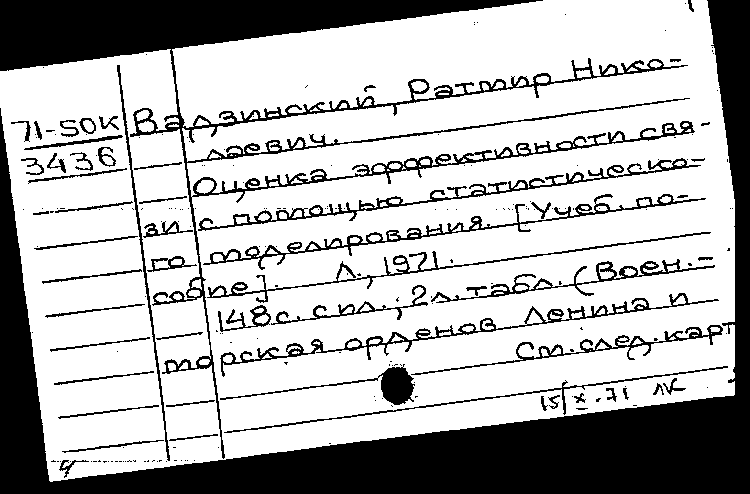 71-50К Вадзинский, Ратмир Нико-
3436 лаевич.
Оценка эффективности свя-
зи с помощью статистическо-
го моделирования. [Учеб. по-
собие]. Л., 1971.
148с. с ил.; 2л. табл. (Воен.-
морская орденов Ленина и
См. след. карт
15/X.-71 ЛК
4